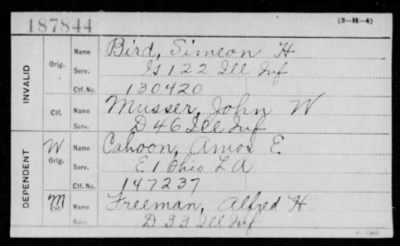 187844 (3-H-4)
INVALID
Orig. Name Bird, Simeon H
Serv. G 122 Ill Inf
Ctf. No. 130420
Ctf. Name Musser, John W
Serv. D 46 Ill Inf
DEPENDENT
W Orig. Name Cahoon, Amos E
Serv. E 1 Ohio L A
Ctf. No. 147237
M Ctf. Name Freeman, Alfred H
Serv. D 33 Ill Inf